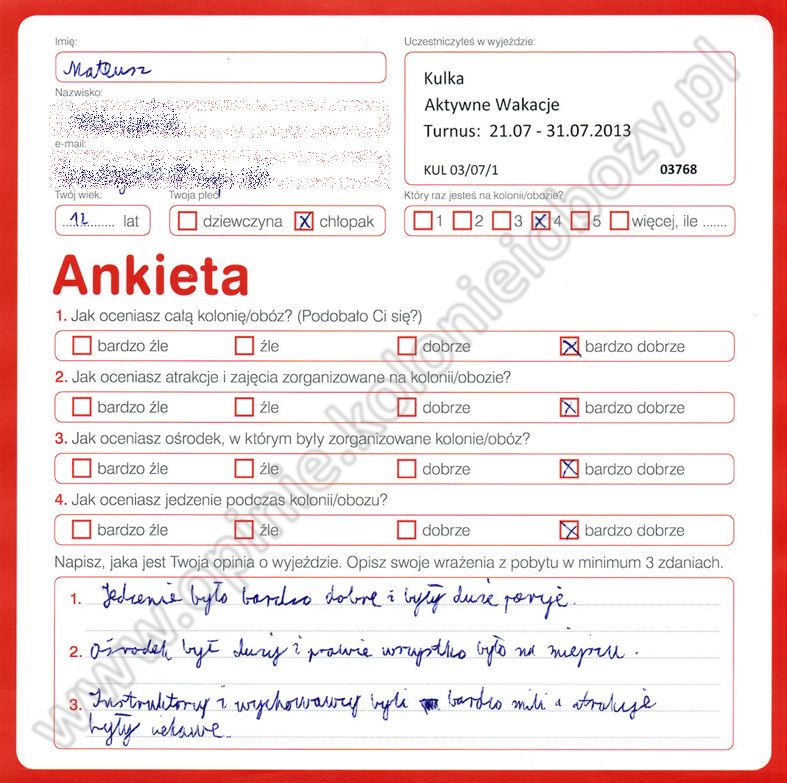 Imię:
Mateusz
Nazwisko:
e-mail:
Twój wiek:
12 lat
Twoja płeć
dziewczyna x chłopak
Uczestniczyłeś w wyjeździe:
Kulka
Aktywne Wakacje
Turnus: 21.07 - 31.07.2013
KUL 03/07/1 03768
Który raz jesteś na kolonii/obozie?
1 2 3 x 4 5 więcej, ile .......
Ankieta
1. Jak oceniasz całą kolonię/obóz? (Podobało Ci się?)
bardzo źle źle dobrze x bardzo dobrze
2. Jak oceniasz atrakcje i zajęcia zorganizowane na kolonii/obozie?
bardzo źle źle dobrze x bardzo dobrze
3. Jak oceniasz ośrodek, w którym były zorganizowane kolonie/obóz?
bardzo źle źle dobrze x bardzo dobrze
4. Jak oceniasz jedzenie podczas kolonii/obozu?
bardzo źle źle dobrze x bardzo dobrze
Napisz, jaka jest Twoja opinia o wyjeździe. Opisz swoje wrażenia z pobytu w minimum 3 zdaniach.
1. Jedzenie było bardzo dobre i były duże porcje.
2. Ośrodek był duży i prawie wszystko było na miejscu.
3. Instruktorzy i wychowawcy byli bardzo mili a atrakcje
były ciekawe.
www.opinie.kolonieiobozy.pl